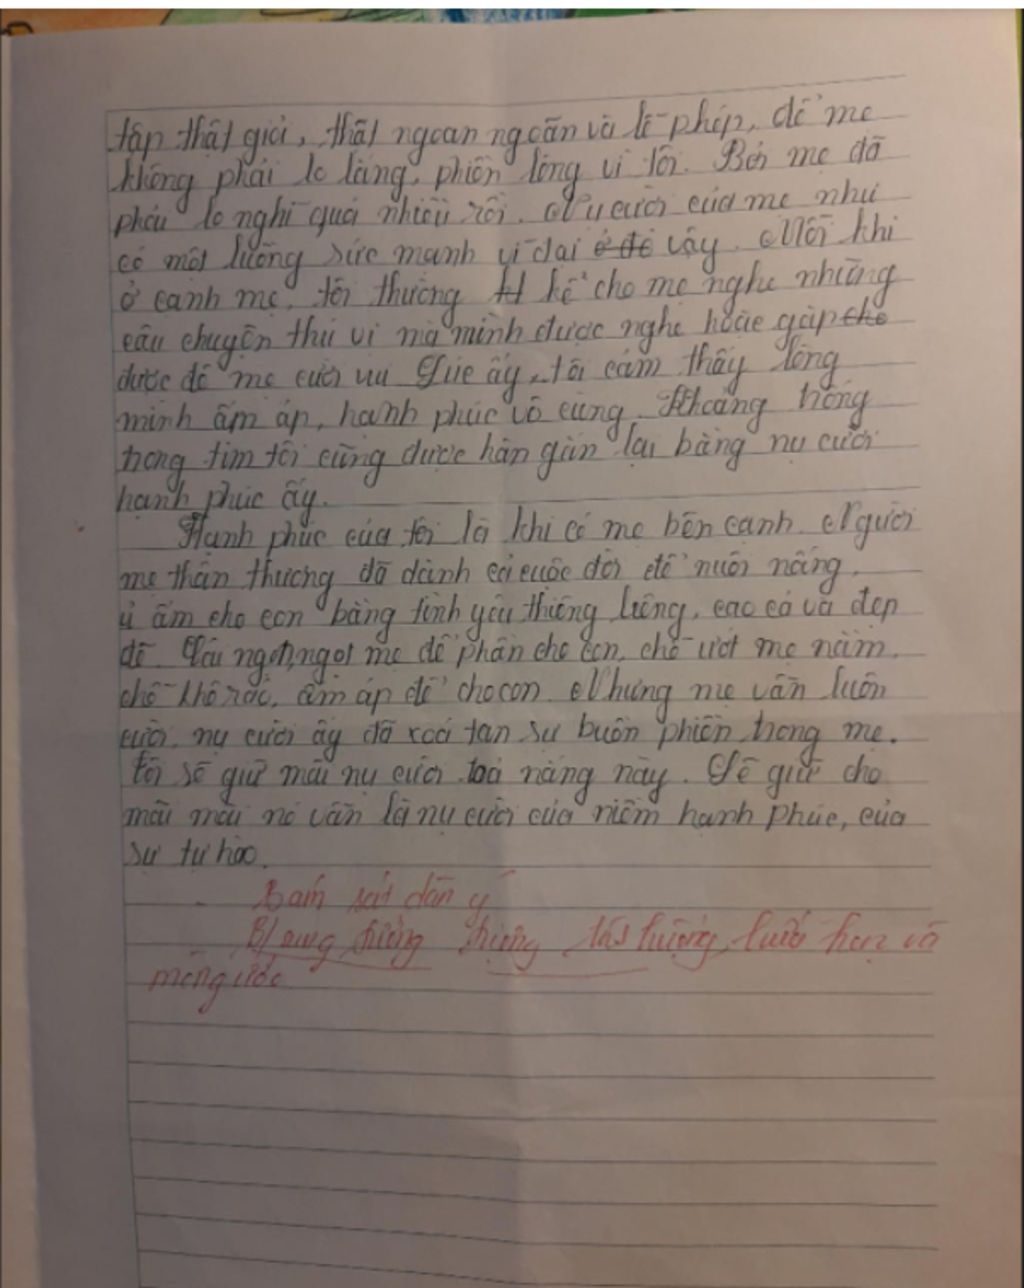 tập thật giỏi, thật ngoan ngoãn và lễ phép, để mẹ
không phải lo lắng, phiền lòng vì tôi. Bởi mẹ đã
phải lo nghĩ quá nhiều rồi. Nụ cười của mẹ như
có một luồng sức mạnh vĩ đại ở đó vậy. Mỗi khi
ở cạnh mẹ, tôi thường kể cho mẹ nghe những
câu chuyện thú vị mà mình được nghe hoặc gặp cho
được để mẹ cười vui. Lúc ấy, tôi cảm thấy lòng
mình ấm áp, hạnh phúc vô cùng. Khoảng trống
trong tim tôi cũng được hàn gắn lại bằng nụ cười
hạnh phúc ấy.
Hạnh phúc của tôi là khi có mẹ bên cạnh. Người
mẹ thân thương đã dành cả cuộc đời để nuôi nấng,
ủ ấm cho con bằng tình yêu thiêng liêng, cao cả và đẹp
đẽ. Trái ngọt, ngọt mẹ để phần cho con, chỗ ướt mẹ nằm,
chỗ khô ráo, ấm áp để cho con. Nhưng mẹ vẫn luôn
cười, nụ cười ấy đã xoá tan sự buồn phiền trong mẹ.
Tôi sẽ giữ mãi nụ cười toả nắng này. Sẽ giữ cho
mãi mãi nó vẫn là nụ cười của niềm hạnh phúc, của
sự tự hào.
Bám sát dàn ý
hứa hẹn và
mong ước